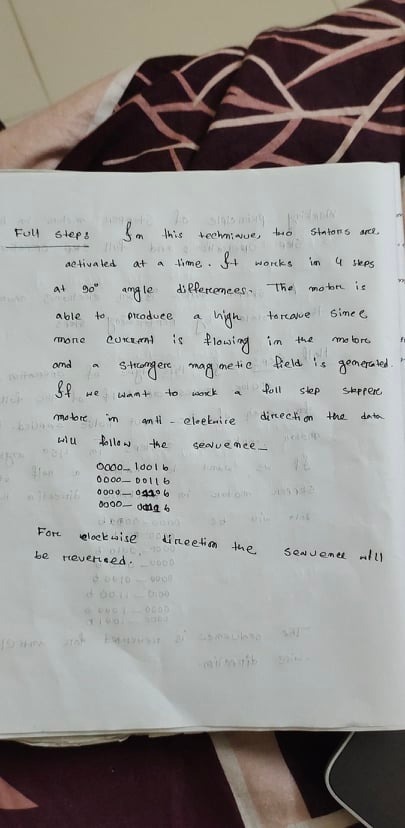 Full Steps In this technique, two stators are
activated at a time. It works in 4 steps
at 90° angle differences. The motor is
able to produce a high torque since
more current is flowing in the motor
and a stronger magnetic field is generated.
If we want to work a full step stepper
motor in anti-clockwise direction the data
will follow the sequence_
0000_1001 b
0000_0011 b
0000_
0000_
For clockwise direction the sequence will
be reversed.